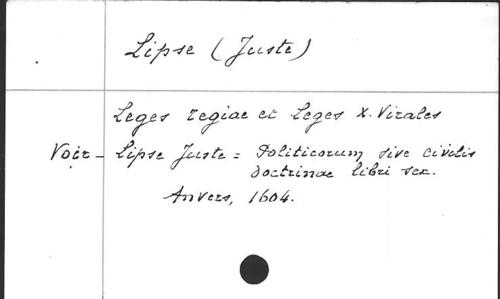 Lipse (Juste)
Leges regiae et Leges X. Virales
Voir - Lipse Juste = Politicorum sive civilis
doctrinae libri sex.
Anvers, 1604.